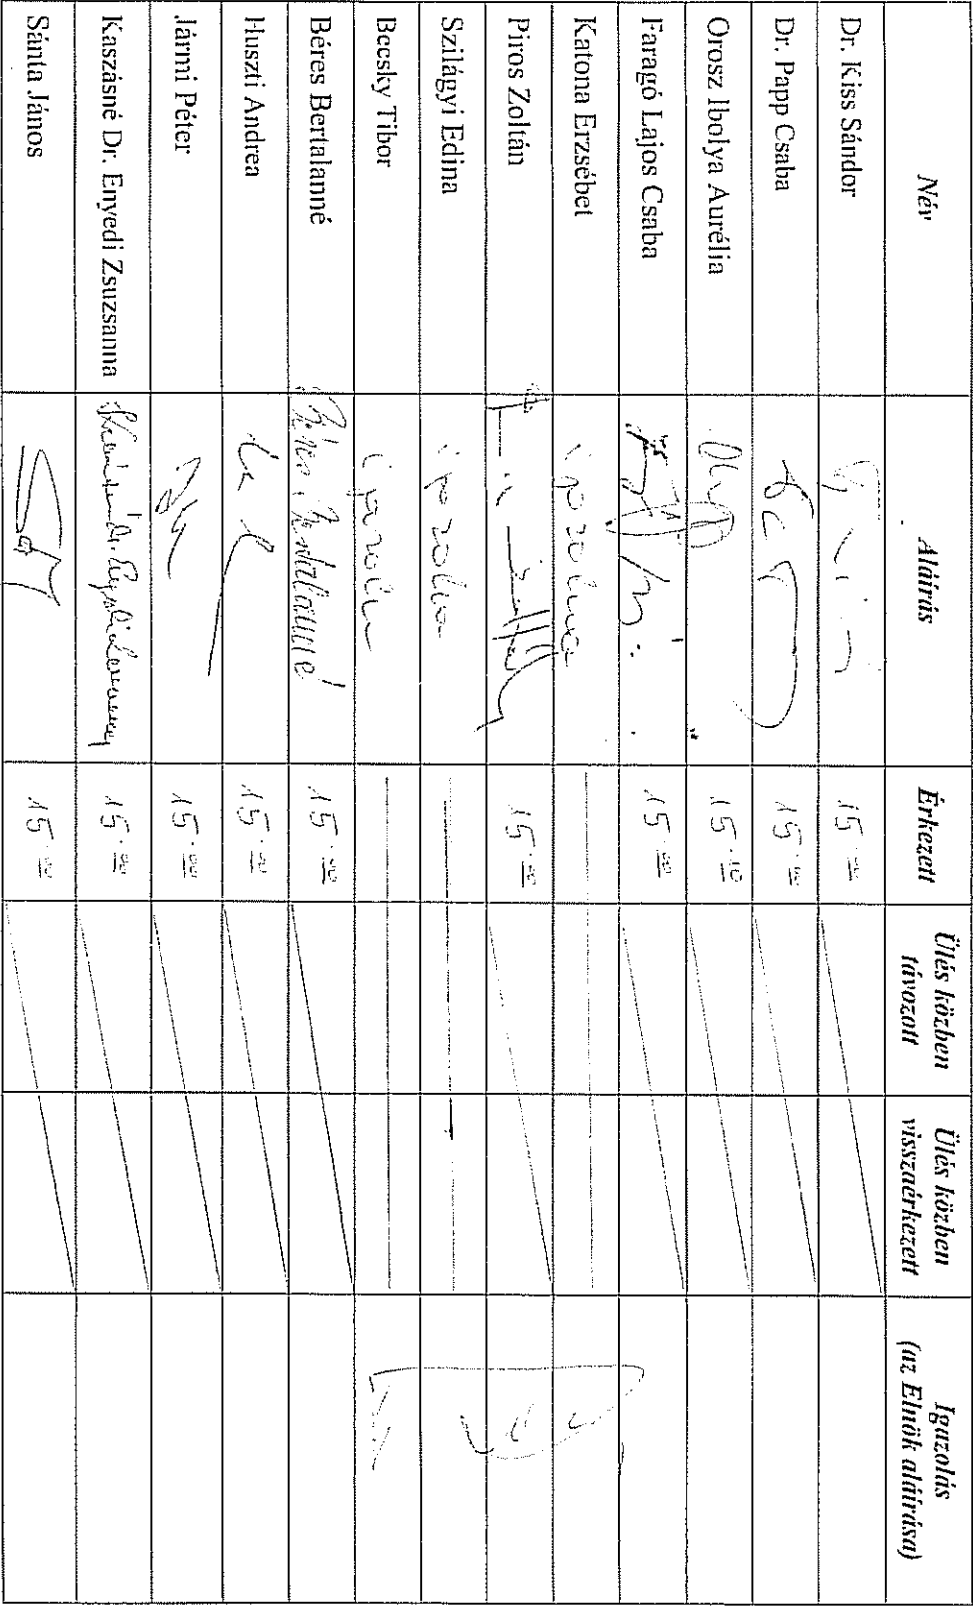 Név Aláírás Érkezett Ülés közben távozott Ülés közben visszaérkezett Igazolás (az Elnök aláírása)
Dr. Kiss Sándor 15.00
Dr. Papp Csaba 15.00
Orosz Ibolya Aurélia 15.10
Faragó Lajos Csaba 15.00
Katona Erzsébet igazolva
Piros Zoltán 15.00
Szilágyi Edina igazolva
Becsky Tibor igazolva
Béres Bertalanné Béres Bertalanné 15.00
Huszti Andrea 15.00
Jármi Péter 15.00
Kaszásné Dr. Enyedi Zsuzsanna 15.00
Sánta János 15.00